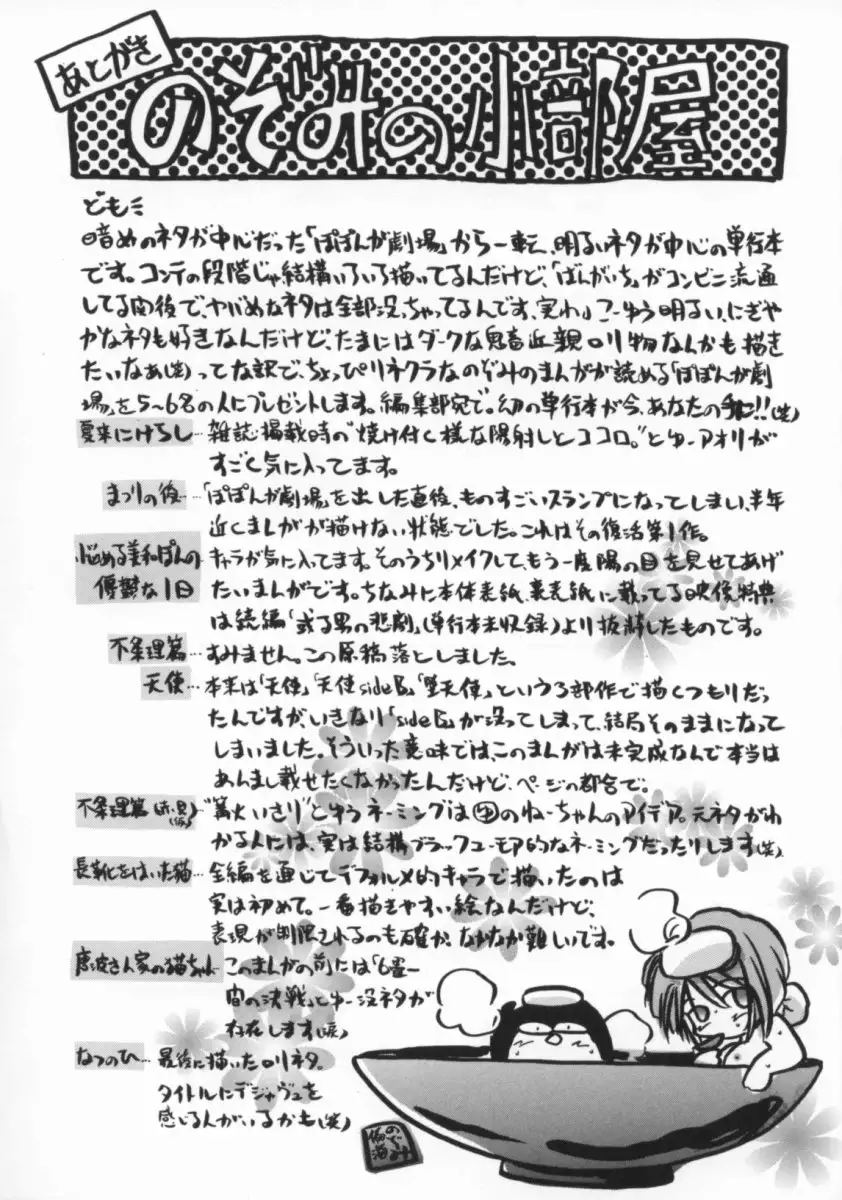 あとがき
のぞみの小部屋
ども
暗めのネタが中心だった「ぽぽんが劇場」から一転、明るいネタが中心の単行本
です。コンテの段階じゃ結構いろいろ描いてるんだけど、「ばんがいち」がコンビニ流通
してる関係で、ヤバめなネタは全部没っちゃってるんです、実わ」こーゆう明るい、にぎや
かなネタも好きなんだけど、たまにはダークな鬼畜近親ロリ物なんかも描き
たいなあ(笑)ってな訳で、ちょっぴりネクラなのぞみのまんがが読める「ぽぽんが劇
場」を5~6名の人にプレゼントします。編集部宛で。幻の単行本が今、あなたの手に!!(笑)
夏来にけらし…雑誌掲載時の“焼け付く様な陽射しとココロ。”とゆーアオリが
すごく気に入ってます。
まつりの後…「ぽぽんが劇場」を出した直後、ものすごいスランプになってしまい、半年
近くまんがが描けない状態でした。これはその復活第1作。
悩める美和ぽんの キャラが気に入ってます。そのうちリメイクして、もう一度陽の目を見せてあげ
優鬱な1日 たいまんがです。ちなみに本体表紙、裏表紙に載ってる映像特典
は続編「或る男の悲劇」(単行本未収録)より抜粋したものです。
不条理篇…すみません。この原稿落としました。
天使…本来は「天使」「天使sideB」「堕天使」という3部作で描くつもりだっ
たんですが、いきなり「sideB」が没ってしまって、結局そのままになって
しまいました。そういった意味では、このまんがは未完成なんで本当は
あんまし載せたくなかったんだけど、ページの都合で。
不条理篇 “篝火いさり”とゆうネーミングは のねーちゃんのアイデア。元ネタがわ
かる人には、実は結構ブラックユーモア的なネーミングだったりします(笑)
長靴をはいた猫…全編を通じてデフォルメ的キャラで描いたのは
実は初めて。一番描きやすい絵なんだけど、
表現が制限されるのも確か。なかなか難しいです。
さん家の猫ちゃん このまんがの前には「6畳一
間の決戦」とゆー没ネタが
存在します(涙)
なつのひ…最後に描いたロリネタ。
タイトルにデジャヴュを
感じる人がいるかも(笑)
のぞみ